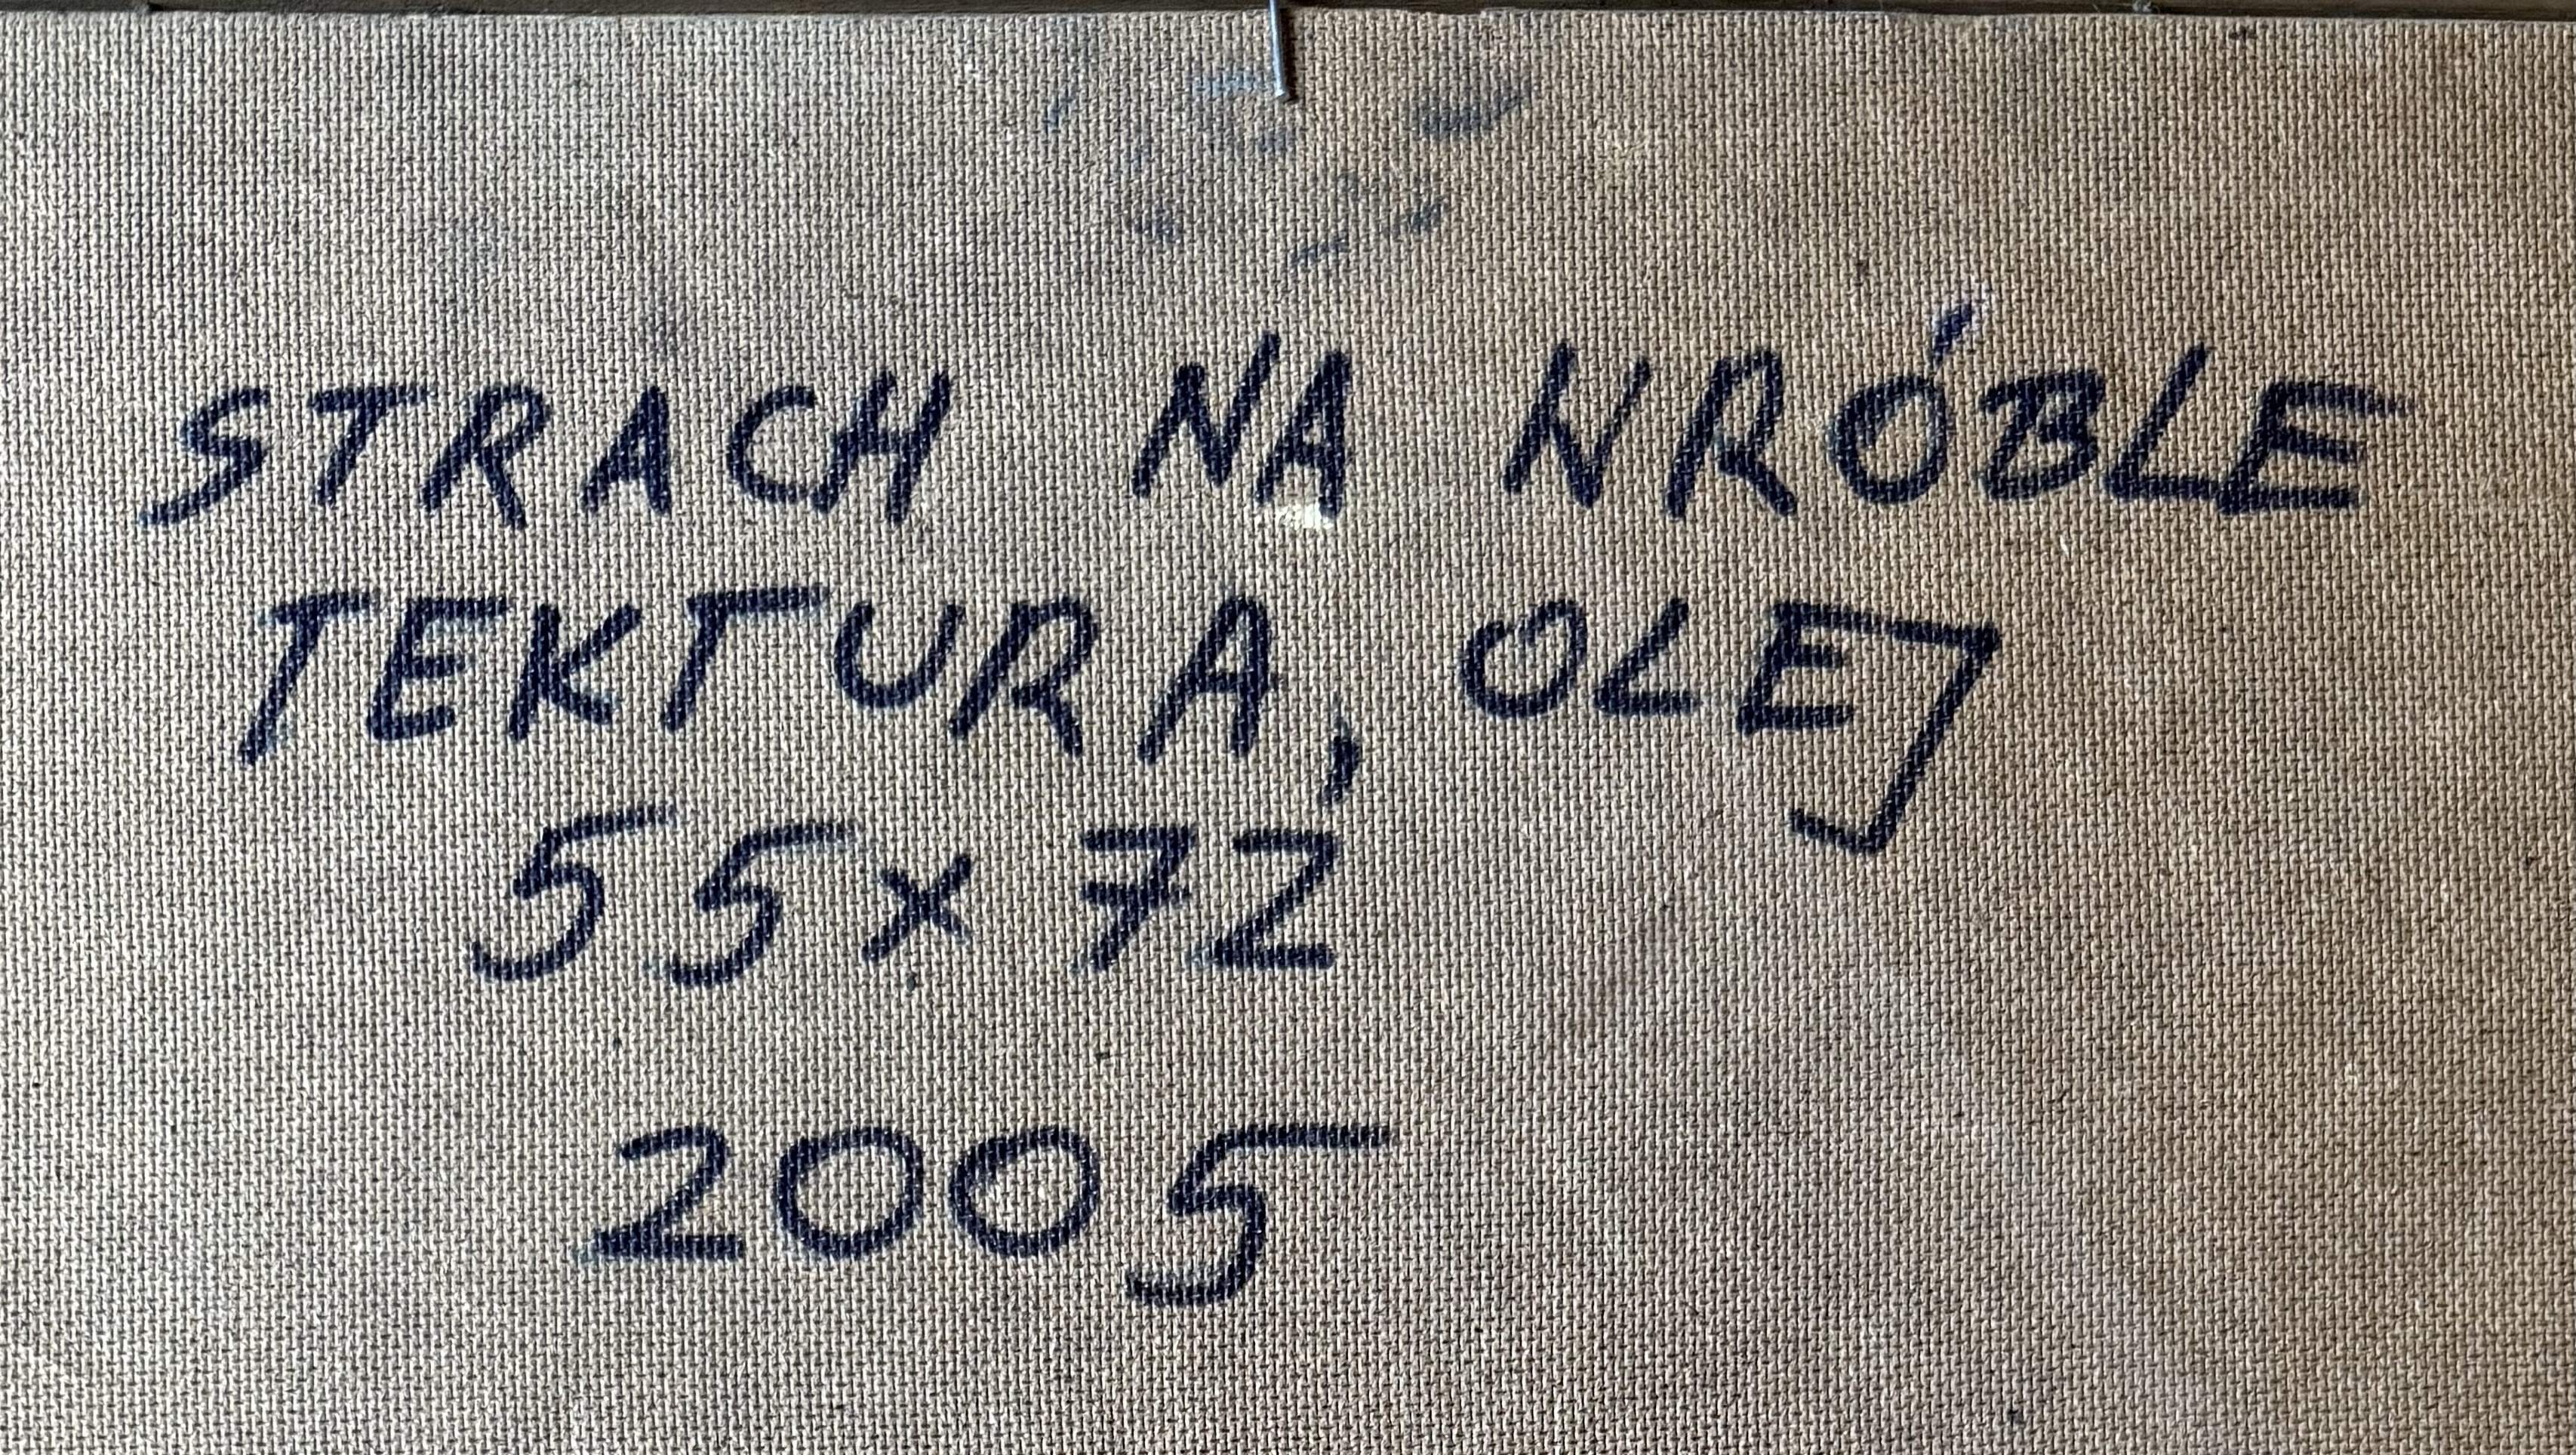 STRACH NA WRÓBLE
TEKTURA, OLEJ
55x72
2005